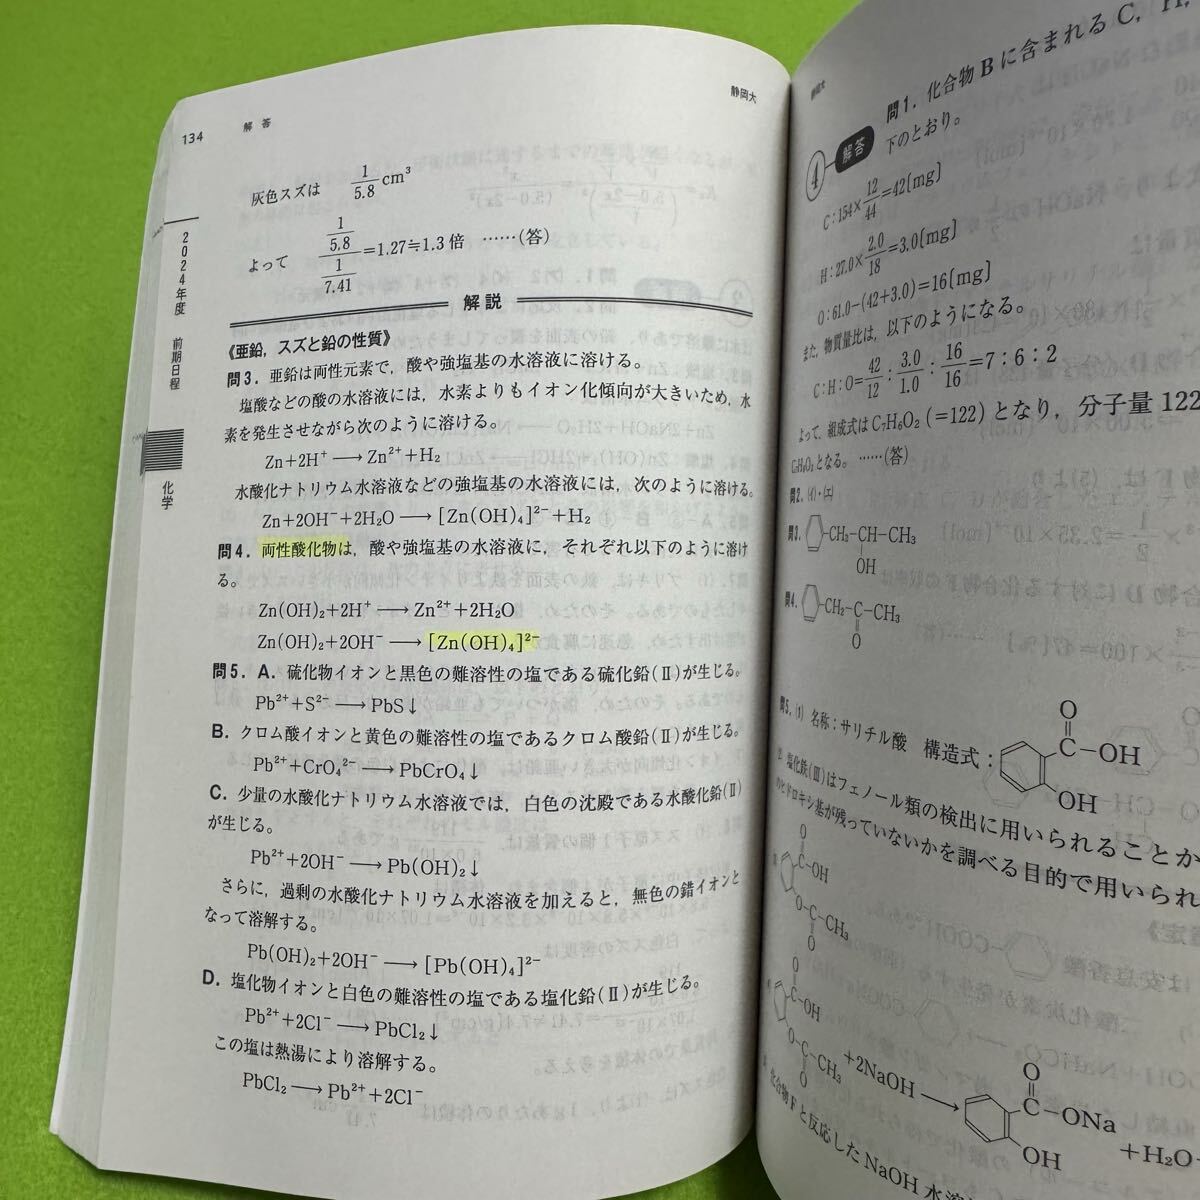 134
解答
静岡大
2024年度
前期日程
化学
灰色スズは 1/5.8 cm³
よって (1/5.8)/(1/7.41)=1.27≒1.3倍 ……(答)
解説
《亜鉛，スズと鉛の性質》
問3．亜鉛は両性元素で，酸や強塩基の水溶液に溶ける。
塩酸などの酸の水溶液には，水素よりもイオン化傾向が大きいため，水
素を発生させながら次のように溶ける。
Zn+2H⁺ ⟶ Zn²⁺+H₂
水酸化ナトリウム水溶液などの強塩基の水溶液には，次のように溶ける。
Zn+2OH⁻+2H₂O ⟶ [Zn(OH)₄]²⁻+H₂
問4．両性酸化物は，酸や強塩基の水溶液に，それぞれ以下のように溶け
る。
Zn(OH)₂+2H⁺ ⟶ Zn²⁺+2H₂O
Zn(OH)₂+2OH⁻ ⟶ [Zn(OH)₄]²⁻
問5．A．硫化物イオンと黒色の難溶性の塩である硫化鉛(Ⅱ)が生じる。
Pb²⁺+S²⁻ ⟶ PbS↓
B．クロム酸イオンと黄色の難溶性の塩であるクロム酸鉛(Ⅱ)が生じる。
Pb²⁺+CrO₄²⁻ ⟶ PbCrO₄↓
C．少量の水酸化ナトリウム水溶液では，白色の沈殿である水酸化鉛(Ⅱ)
が生じる。
Pb²⁺+2OH⁻ ⟶ Pb(OH)₂↓
さらに，過剰の水酸化ナトリウム水溶液を加えると，無色の錯イオンと
なって溶解する。
Pb(OH)₂+2OH⁻ ⟶ [Pb(OH)₄]²⁻
D．塩化物イオンと白色の難溶性の塩である塩化鉛(Ⅱ)が生じる。
Pb²⁺+2Cl⁻ ⟶ PbCl₂↓
この塩は熱湯により溶解する。
PbCl₂ ⟶ Pb²⁺+2Cl⁻
静岡大
4 解答 問1．化合物Bに含まれるC，H，
下のとおり。
C：154×12/44=42[mg]
H：27.0×2.0/18=3.0[mg]
O：61.0−(42+3.0)=16[mg]
また，物質量比は，以下のようになる。
C：H：O=42/12：3.0/1.0：16/16=7：6：2
よって，組成式はC₇H₆O₂(=122)となり，分子量122
C₇H₆O₂となる。……(答)
問2．(イ)・(エ)
問3．
CH₂−CH−CH₃
OH
問4．
CH₂−C−CH₃
O
問5．(1) 名称：サリチル酸 構造式：
O
C−OH
OH
塩化鉄(Ⅲ)はフェノール類の検出に用いられることか
ヒドロキシ基が残っていないかを調べる目的で用いられ
O
C−OH
O−C−CH₃
O
O
C−OH
O−C−CH₃
O
+2NaOH ⟶
O
C−ONa
OH
+H₂O
化合物Fと反応したNaOH水溶